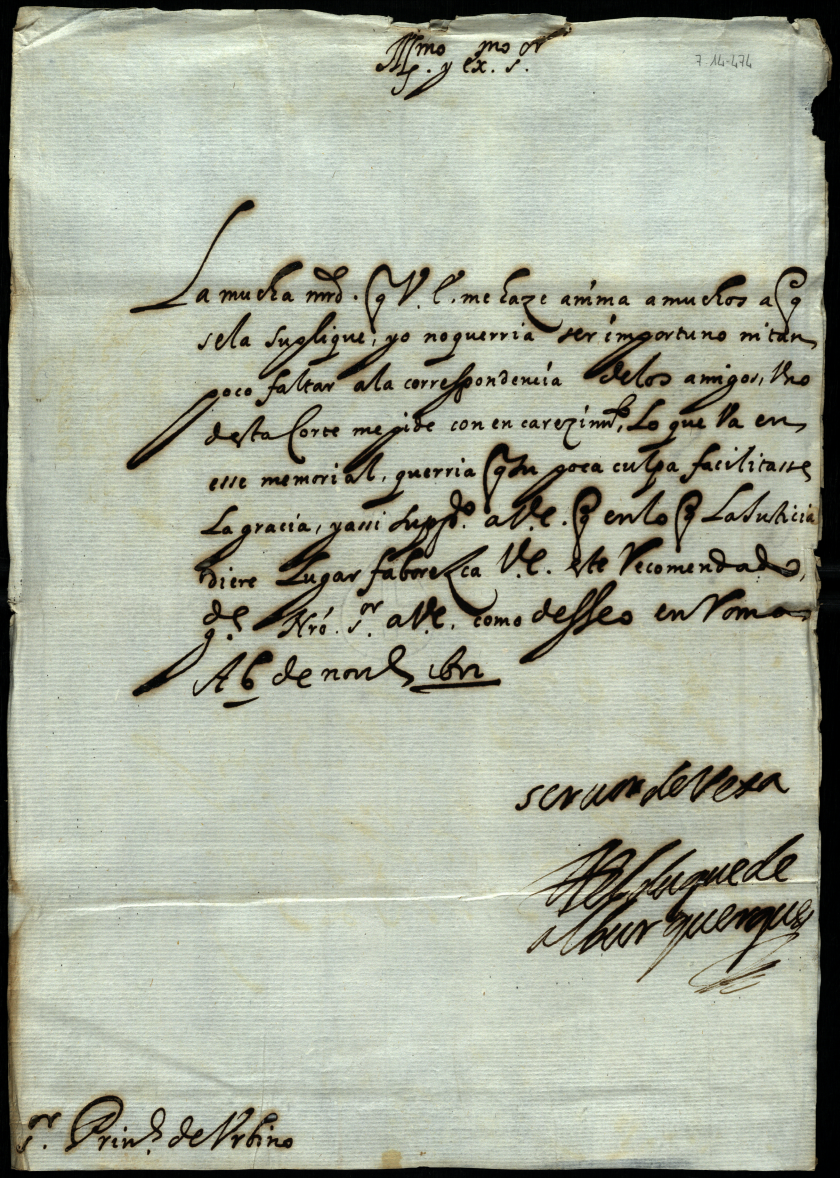 Illmo y exmo sor
7-14-474
La mucha mrd. q V. E. me haze anima a muchos a q
se la suplique, yo no querria ser importuno ni tan
poco faltar a la correspondencia de los amigos, Uno
desta Corte me pide con encarezimto, Lo que va en
esse memorial, querria q su poca culpa facilitasse
La gracia, y assi suppco. a V.E. q en lo q La Justicia
diere Lugar faborezca V.E. este Recomendado,
gde Nro. sor a V.E. como desseo en Roma
A 6 de nove
seruor de Vexa
El duque de
alburquerque
sor. Prinpe de Urbino